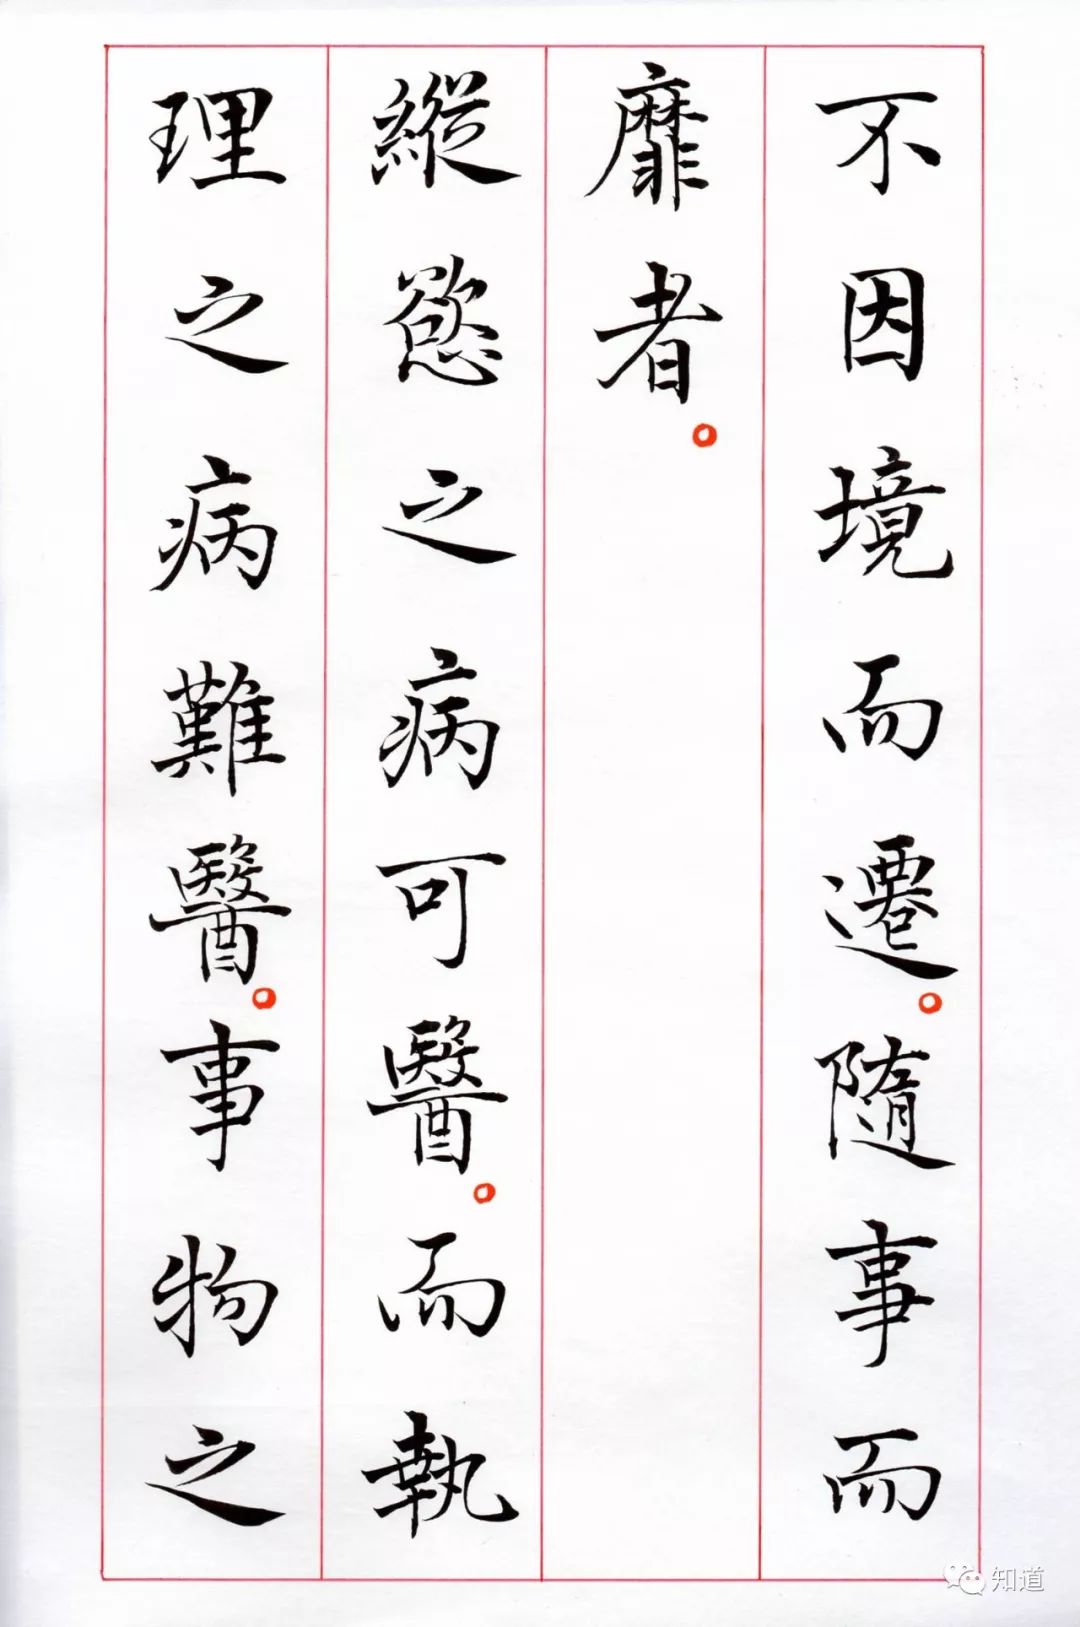 不因境而遷。隨事而
靡者。
縱慾之病可醫。而執
理之病難醫。事物之
知道